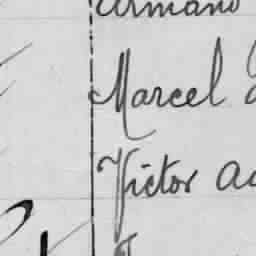 Armand
Marcel
Victor